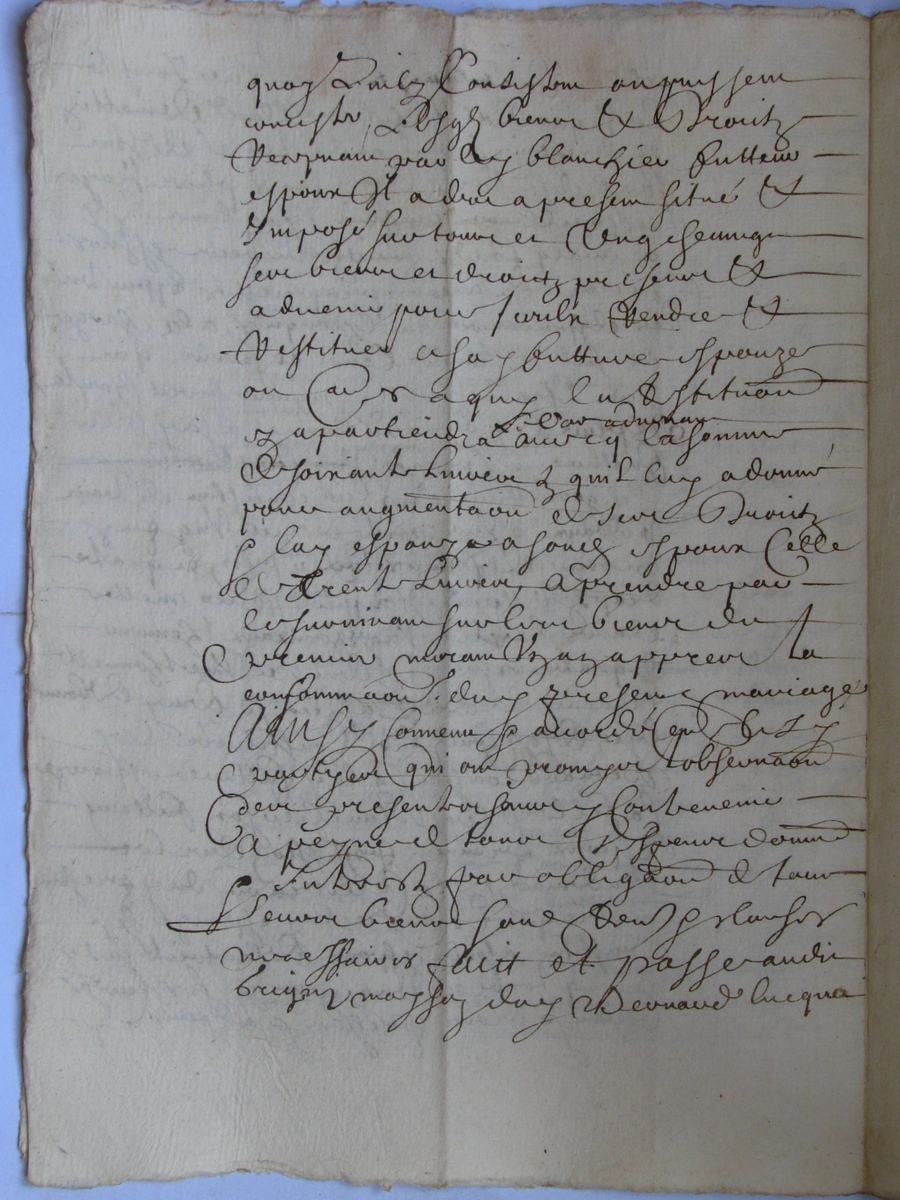 quoy qu'ilz consistent ou puissent
concister, Lesqlz biens & Droitz
Recepvant par led blanchier futteur
espoux Il a des a present situé &
Imposé sur tous et ungchescungs
ses biens et droitz presents &
advenir pour Iceulx Rendre &
Restituer a sad futture espouze
ou a qui la Restitution
Le cas advenant
appartiendra avecq la somme
de soixante Livres qu'il luy a donné
pour augmentation de ses Droitz
& lad espouze a sond espoux Celle
de Trente Livres, a prendre par
le survivant sur les biens du
premier mourant appres la
consommaon dud present mariage
Ainsy Convenu & acordé entre lesd
partyes qui ont promis l'observaon
des presentes sans y Contrevenir
A peyne de tous despens dommages
Interestz par obligaon de tous
Leurs biens soubz & clauses
necessaires faict et passé audit
maison dud Bernard lucquet